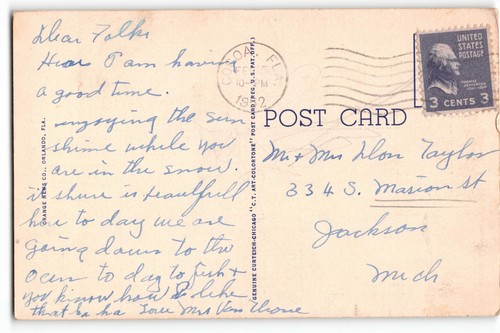 Dear Folks
Here I am having
a good time.
enjoying the sun
shine while you
are in the snow.
it shure is beautifull
here to day we are
going down to the
Ocen to day to fish &
you know how I like
that ha ha Love Mrs
ORANGE NEWS CO., ORLANDO, FLA.
GENUINE CURTEICH-CHICAGO "C.T. ART-COLORTONE" POST CARD (REG. U.S. PAT. OFF.)
COCOA, FLA.
POST CARD
UNITED
STATES
POSTAGE
THOMAS
JEFFERSON
3 CENTS 3
Mr & Mrs Don Taylor
334 S. Marion St
Jackson
Mich